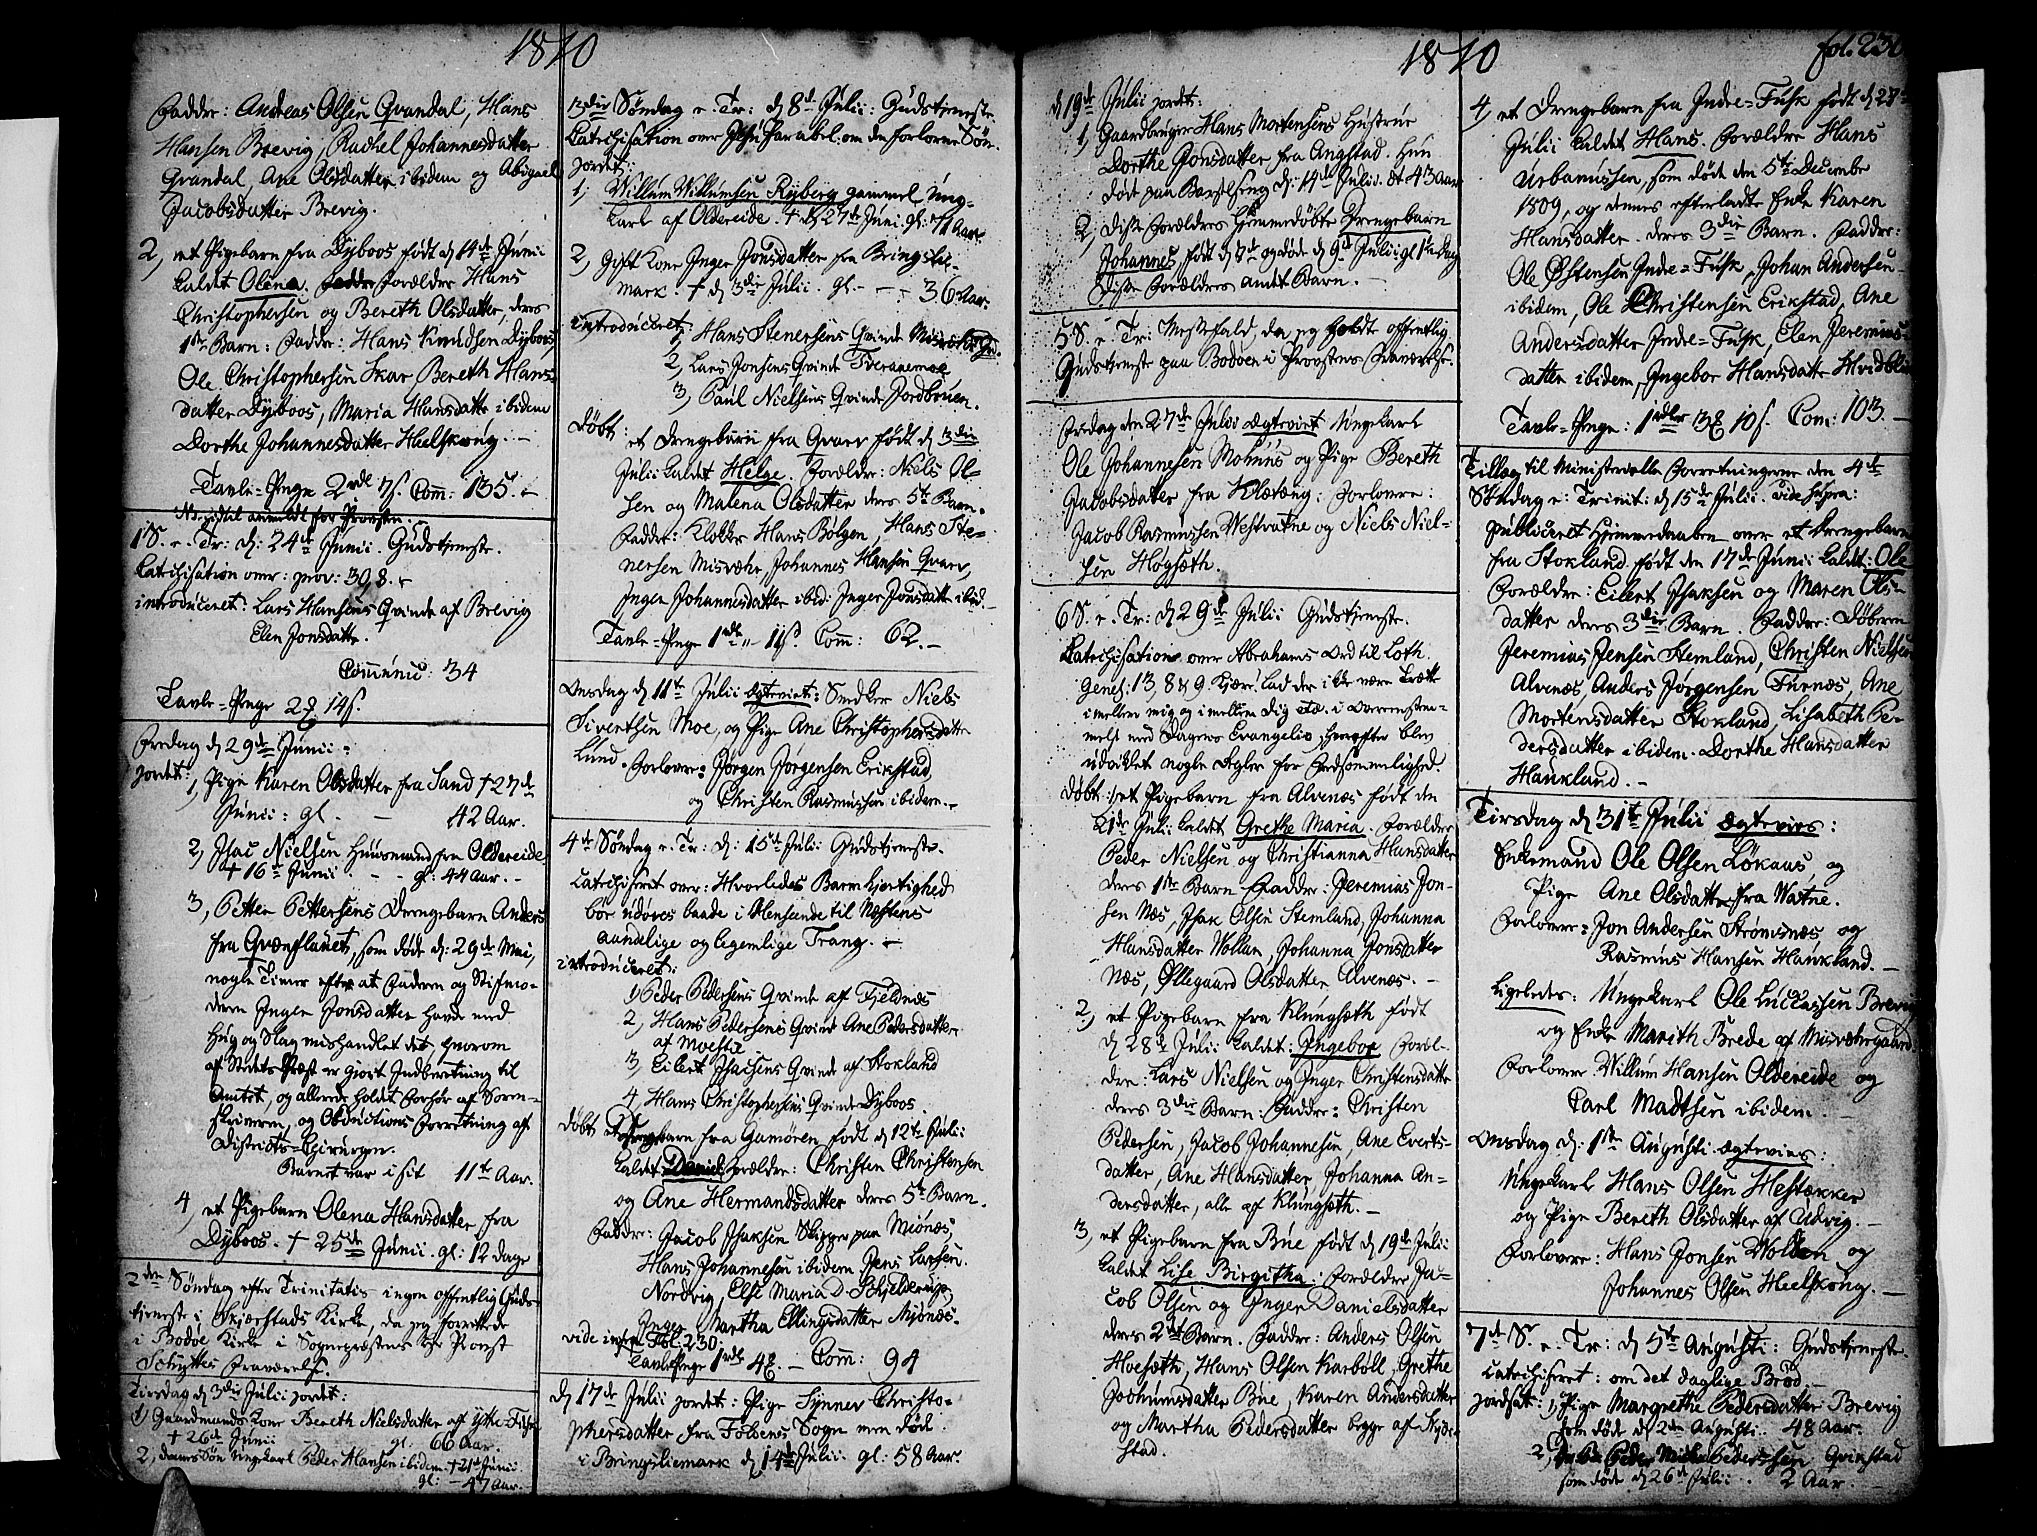 1810
Fadder: Andreas Olsen Grandal, Hans
Hansen Brevig, Rachel Johannesdatter
Grandal, Ane Olsdatter ibidem og Abigael
Jacobsdatter Brevig.
2, et Pigebarn fra Dyboos født d 14de Junii
kaldet Olena. Forældre Hans
Christophersen og Bereth Olsdatter, deres
1ste Barn: Fadder: Hans Knudsen Dyboos,
Ole Christophersen Skar Bereth Hans-
datter Dyboos, Maria Hansdatter ibidem
Dorthe Johannesdatter Heelskong. -
Tavle-Penge 2 rdl 7 s. Com: 135. -
NB. hidtil anmeldt for Provsten.
1 S. e. Tr: d: 24de Junii. Gudstjeneste.
Catechisation over: prov: 30, 8.
introduceret: Lars Hansens Qvinde af Brevig
Elen Jonsdatter.
Communic: 34
Tavle-Penge 2 14 s.
Fredag d 29de Junii:
jordet: 1, Pige Karen Olsdatter fra Sand † 27de
Junii: gl. - 42 Aar.
2, Isac Nielsen Huusmand fra Oldereide
† 16de Junii. - - gl: 44 Aar. -
3, Petter Pettersens Drengebarn Anders
fra Grænflauet, som døde d: 29de Mai,
nogle Timer efter at Faderen og Stifmo-
deren Inger Jonsdatter havde med
Hug og Slag mishandlet det hvorom
af Stedets Præst er gjort Indberetning til
Amtet, og allerede holdet Forhør af Soren-
skriveren, og Obductions Forretning af
Districts-Chirurgen.
Barnet var i sit 11te Aar.
4, et Pigebarn Olena Hansdatter fra
Dyboos. † 25de Junii. gl: 12 dage
2den Søndag efter Trinitatis ingen offentlig Guds-
tjeneste i Skjerstads Kirke, da jeg forrettede
i Bodøe Kirke i Sognepræstens Hr Provst
Schyttes Fraværelse.
Tirsdag d 3die Julii jordet:
1, Gaardmands Kone Bereth Nielsdatter af Ytre-Fuske
† 26de Junii gl: 66 Aar.
2, dennes Søn Ungekarl Peder Hansen ibidem † 21de Junii
gl: - 47 Aar.
3die Søndag e. Tr: d 8de Julii: Gudstjeneste
Catechisation over Jesu Parabel: om den forlorne Søn.
jordet:
1, Willum Willumsen Ryberg gammel Ung-
karl af Oldereide. † d 27de Juni. gl: 71 Aar.
2, Gift Kone Inger Jonsdatter fra Bringslie-
mark. † d 3die Julii. gl. - - : 36 Aar.
introduceret: 1, Hans Stenersens Qvinde Misvær
2, Lars Jonsens Qvinde Tveranemoe
3, Paul Nielsens Qvinde Jordbruen.
Døbt: et Drengebarn fra Qvarv født d 3die
Julii kaldet Helge. Forældre: Niels Ol-
sen og Malena Olsdatter deres 5te Barn.
Fadder: Klokker Hans Bølgen, Hans Ste-
nersen Misvæhr, Johannes Hansen Qvarv,
Inger Johannesdatter ibid: Inger Jonsdatter ibid.
Tavle-Penge 1 rdl „ 11 s. Com: 62. -
Onsdag d 11te Julii Ægteviet: Smedker Niels
Sivertsen Moe, og Pige Ane Christophersdatter
Lund. Forlovere: Jørgen Jørgensen Erikstad
og Christen Rasmussen ibidem. -
4de Søndag e. Tr: d: 15de Julii Gudstjeneste.
Catechiseret over: Hvorledes Barmhjertighed
bør udøves baade i Henseende til Næstens
aandelige og legemlige Trang. -
introduceret:
1, Peder Pedersens Qvinde af Fjeldnæs
2, Hans Pedersens Qvinde Ane Pedersdatter
af Moestie
3, Eilert Isacsens Qvinde af Stokland
4, Hans Christophersens Qvinde Dyboos.
Døbt et Drengebarn fra Gamøren født d 12te Julii
kaldet Daniel Forældre: Christen Christensen
og Ane Hermandsdatter deres 5te Barn.
Fadder: Jacob Isaksen Skipper paa Miønæs,
Hans Johannesen ibidem Jens Larsen
Nordvig, Else Maria D. Schjelderup,
Inger Martha Ellingsdatter Miønæs.
vide infra Fol: 230:
Tavle-Penge 1 rdl 4 . - Com: 94
d 17de Julii jordet: Pige Synnev Christo-
phersdatter fra Foldens Sogn men død
i Bringsliemark d 14de Julii gl: 58 Aar.
1810
fol. 230
d 19de Julii jordet:
1, Gaardbruger Hans Mortensens Hustrue
Dorthe Jonsdatter fra Angstad. Hun
døde paa Barselseng d: 14de Julii. æt 43 Aar
2, Disse Forældres hjemmedøbte Drengebarn
Johannes født d 8de og døde d 9de Julii gl 1te Dag
Disse Forældres andet Barn. -
5 S. e. Tr: Messefald, da jeg holdte offentlig
Gudstjeneste paa Bodøen i Provstens Fraværelse.
Fredag den 27de Julii ægteviet Ungekarl
Ole Johannesen Mohuus og Pige Bereth
Jacobsdatter fra Kletæng: Forlovere:
Jacob Rasmussen Westvatne og Niels Niel-
sen Høgsæth.
6 S. e. Tr: d 29de Julii Gudstjeneste.
Catechisation over Abrahams Ord til Loth.
Genes: 13, 8 & 9. Kjære! lad der ikke være Trætte
imellem mig og imellem dig etc. i Overensstem-
melse med Dagens Evangelio, hvorefter blev
udviklet nogle Regler for Fredsommelighed.
Døbt: 1, et Pigebarn fra Alvenæs født den
21de Julii kaldet Grethe Maria. Forældre
Peder Nielsen og Christianna Hansdatter
deres 1ste Barn Fadder: Jeremias Jon-
sen Næs, Isak Olsen Stemland, Johanna
Hansdatter Wollan, Johanna Jonsdatter
Næs, Øllegaard Olsdatter Alvenæs. -
2, et Pigebarn fra Klungsæth født
d 28de Julii kaldet: Ingebor Foræl-
dre: Lars Nielsen og Inger Christensdatter
deres 3die Barn: Fadder: Christen
Pedersen, Jacob Johannesen, Ane Everts-
datter, Ane Hansdatter, Johanna An-
dersdatter, alle af Klungsæth. -
3, et Pigebarn fra Bue født d 19de Julii
kaldet Lise Birgitha: Forældre Ja-
cob Olsen og Inger Danielsdatter
deres 2det Barn. Fadder: Anders Olsen
Hoesæth, Hans Olsen Karbøll, Grethe
Jochumsdatter Bue, Karen Andersdatter
og Martha Pedersdatter begge af Skjer-
stad.
4, et Drengebarn fra Indre-Fusk født d 27de
Julii kaldet Hans. Forældre Hans
Urbanussen, som døde den 5te Decembr
1809, og dennes efterladte Enke Karen
Hansdatter. deres 3die Barn. Fadder:
Ole Østensen Indre-Fusk, Johan Andersen
ibidem, Ole Christensen Erikstad, Ane
Andersdatter Indre-Fusk, Elen Jeremias-
datter ibidem, Ingebor Hansdatter Hvidblik
Tavle-Penge: 1 rdlr 3 10 s. Com: 103. -
Tillæg til Ministerielle Forretningerne den 4de
Søndag e: Trinit: d 15de Julii. vide supra:
publiceret Hjemmedaaben over et Drengebarn
fra Stokland født den 17de Junii kaldt: Ole
Forældre: Eilert Isaksen og Maren Ols-
datter deres 3die Barn. Fadder: Døberen
Jeremias Jensen Stemland, Christen Nielsen
Alvenæs Anders Jørgensen Furnæs, Ane
Mortensdatter Stokland, Lisabeth Pe-
dersdatter ibidem. Dorthe Hansdatter
Haukland. -
Tirsdag d 31te Julii Ægtevies:
Enkemand Ole Olsen Løkaas, og
Pige Ane Olsdatter fra Watne.
Forlovere: Jon Andersen Strømsnæs og
Rasmus Hansen Haukland. -
Ligeledes: Ungekarl Ole Luccassen Brevig
og Enke Marith Brede af Misværhrgaard:
Forlovere Willum Hansen Oldereide og
Carl Madtsen ibidem. -
Onsdag d: 1ste Augusti Ægtevies:
Ungekarl Hans Olsen Hestækker
og Pige Bereth Olsdatter af Udvig. -
Forlovere: Hans Jonsen Wolden og
Johannes Olsen Heelskong. -
7de S. e. Tr: d 5te Augusti: Gudstjeneste.
Catechiseret: om det daglige Brød. -
jordfæst: 1, Pige Margrethe Pedersdatter Brevig
som døde d 2de Augusti. 48 Aar.
2, Pedersen Qvikstad
som døde d 26de Julii. 2 Aar. -